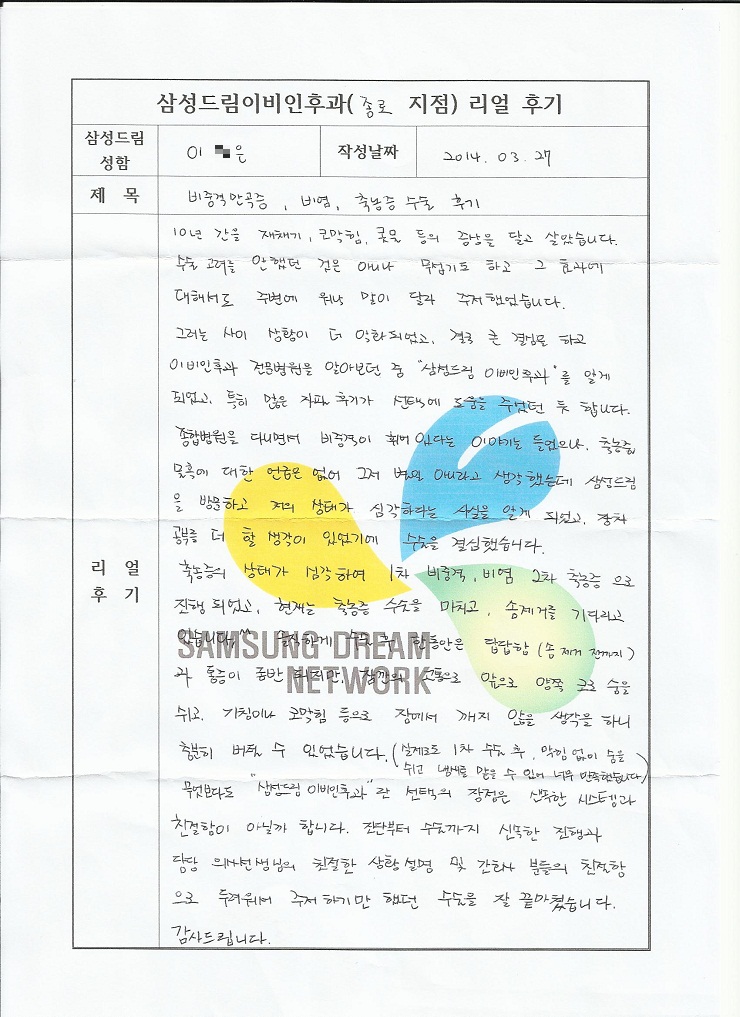 삼성드림이비인후과(종로 지점) 리얼 후기
삼성드림
성함
이 은
작성날짜
2014. 03. 27
제 목
비중격만곡증, 비염, 축농증 수술 후기
10년 간을 재채기, 코막힘, 콧물 등의 증상을 달고 살았습니다.
수술 고려를 안했던 것은 아니나 무섭기도 하고 그 효과에
대해서도 주변에 워낙 말이 달라 주저했었습니다.
그러는 사이 상황이 더 악화되었고, 결국 큰 결심을 하고
이비인후과 전문병원을 알아보던 중 "삼성드림 이비인후과"를 알게
되었고, 특히 많은 자필 후기가 선택에 도움을 주었던 듯 합니다.
종합병원을 다니면서 비중격이 휘어 있다는 이야기는 들었으나, 축농증,
물혹에 대한 언급은 없어 그저 병은 아니라고 생각했는데 삼성드림
을 방문하고 저의 상태가 심각하다는 사실을 알게 되었고, 장차
공부를 더 할 생각이 있었기에 수술을 결심했습니다.
리 얼
후 기
축농증의 상태가 심각하여 1차 비중격, 비염 2차 축농증 으로
진행 되었고, 현재는 축농증 수술을 마치고, 솜제거를 기다리고
있습니다.^^ 솔직하게 수술 후 한동안은 답답함 (솜 제거 전까지)
SAMSUNG DREAM
NETWORK
과 통증이 동반 되지만, 잠깐의 고통으로 앞으로 양쪽 코로 숨을
쉬고, 기침이나 코막힘 등으로 잠에서 깨지 않을 생각을 하니
충분히 버틸 수 있었습니다. (실제로도 1차 수술 후, 막힘 없이 숨을
쉬고 냄새를 맡을 수 있어 너무 만족했답니다)
무엇보다도 "삼성드림 이비인후과"란 선택의 장점은 신속한 시스템과
친절함이 아닐까 합니다. 진단부터 수술까지 신속한 진행과
담당 의사선생님의 친절한 상황 설명 및 간호사 분들의 친절함
으로 두려워서 주저 하기만 했던 수술을 잘 끝마쳤습니다.
감사드립니다.